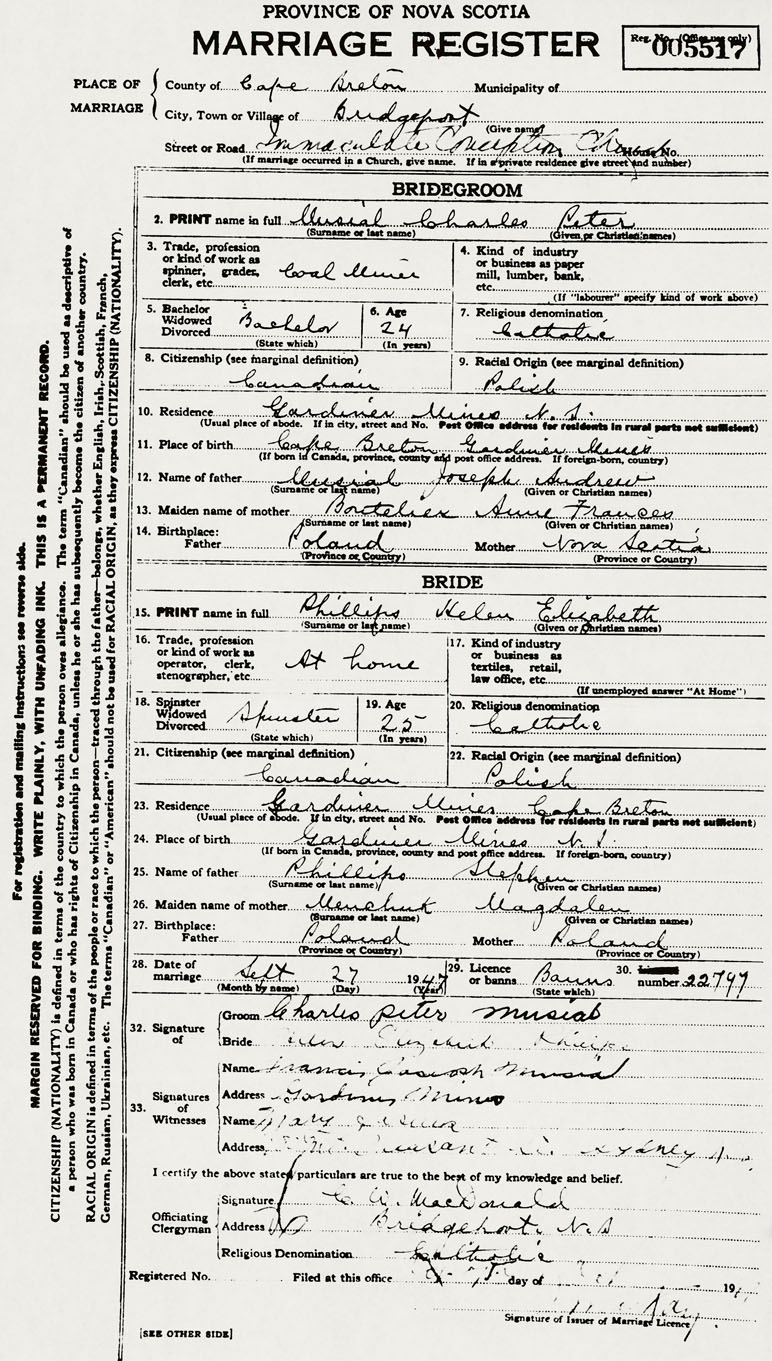 PROVINCE OF NOVA SCOTIA
MARRIAGE REGISTER
Reg. No. (Office use only)
005517
PLACE OF MARRIAGE
County of Cape Breton Municipality of
City, Town or Village of Bridgeport
(Give name)
Street or Road Immaculate Conception Church House No.
(If marriage occurred in a Church, give name. If in a private residence give street and number)
BRIDEGROOM
2. PRINT name in full Musial Charles Peter
(Surname or last name) (Given or Christian names)
3. Trade, profession or kind of work as spinner, grader, clerk, etc. Coal Miner
4. Kind of industry or business as paper mill, lumber, bank, etc.
(If "labourer" specify kind of work above)
5. Bachelor Widowed Divorced Bachelor
(State which)
6. Age 24
(In years)
7. Religious denomination
Catholic
8. Citizenship (see marginal definition)
Canadian
9. Racial Origin (see marginal definition)
Polish
10. Residence Gardiner Mines N.S.
(Usual place of abode. If in city, street and No. Post Office address for residents in rural parts not sufficient)
11. Place of birth Cape Breton Gardiner Mines
(If born in Canada, province, county and post office address. If foreign-born, country)
12. Name of father Musial Joseph Andrew
(Surname or last name) (Given or Christian names)
13. Maiden name of mother Boutelier Anne Frances
(Surname or last name) (Given or Christian names)
14. Birthplace:
Father Poland Mother Nova Scotia
(Province or Country) (Province or Country)
BRIDE
15. PRINT name in full Phillips Helen Elizabeth
(Surname or last name) (Given or Christian names)
16. Trade, profession or kind of work as operator, clerk, stenographer, etc. At home
17. Kind of industry or business as textiles, retail, law office, etc.
(If unemployed answer "At Home")
18. Spinster Widowed Divorced Spinster
(State which)
19. Age 25
(In years)
20. Religious denomination
Catholic
21. Citizenship (see marginal definition)
Canadian
22. Racial Origin (see marginal definition)
Polish
23. Residence Gardiner Mines Cape Breton
(Usual place of abode. If in city, street and No. Post Office address for residents in rural parts not sufficient)
24. Place of birth Gardiner Mines N.S.
(If born in Canada, province, county and post office address. If foreign-born, country)
25. Name of father Phillips Stephen
(Surname or last name) (Given or Christian names)
26. Maiden name of mother Menchuk Magdalen
(Surname or last name) (Given or Christian names)
27. Birthplace:
Father Poland Mother Poland
(Province or Country) (Province or Country)
28. Date of marriage Sept 27 1947
(Month by name) (Day) (Year)
29. Licence or banns Banns
(State which)
30. number 22797
32. Signature of
Groom Charles Peter Musial
Bride Elizabeth
33. Signatures of Witnesses
Name Francis Musial
Address Gardiner Mines
Name Mary
Address Sydney
I certify the above stated particulars are true to the best of my knowledge and belief.
Officiating Clergyman
Signature C. W. MacDonald
Address Bridgeport, N.S
Religious Denomination Catholic
Registered No. Filed at this office day of 19
Signature of Issuer of Marriage Licence
[SEE OTHER SIDE]
For registration and mailing instructions see reverse side.
MARGIN RESERVED FOR BINDING. WRITE PLAINLY, WITH UNFADING INK. THIS IS A PERMANENT RECORD.
CITIZENSHIP (NATIONALITY) is defined in terms of the country to which the person owes allegiance. The term "Canadian" should be used as descriptive of
a person who was born in Canada or who has rights of Citizenship in Canada, unless he or she has subsequently become the citizen of another country.
RACIAL ORIGIN is defined in terms of the people or race to which the person—traced through the father—belongs, whether English, Irish, Scottish, French,
German, Russian, Ukrainian, etc. The terms "Canadian" or "American" should not be used for RACIAL ORIGIN, as they express CITIZENSHIP (NATIONALITY).